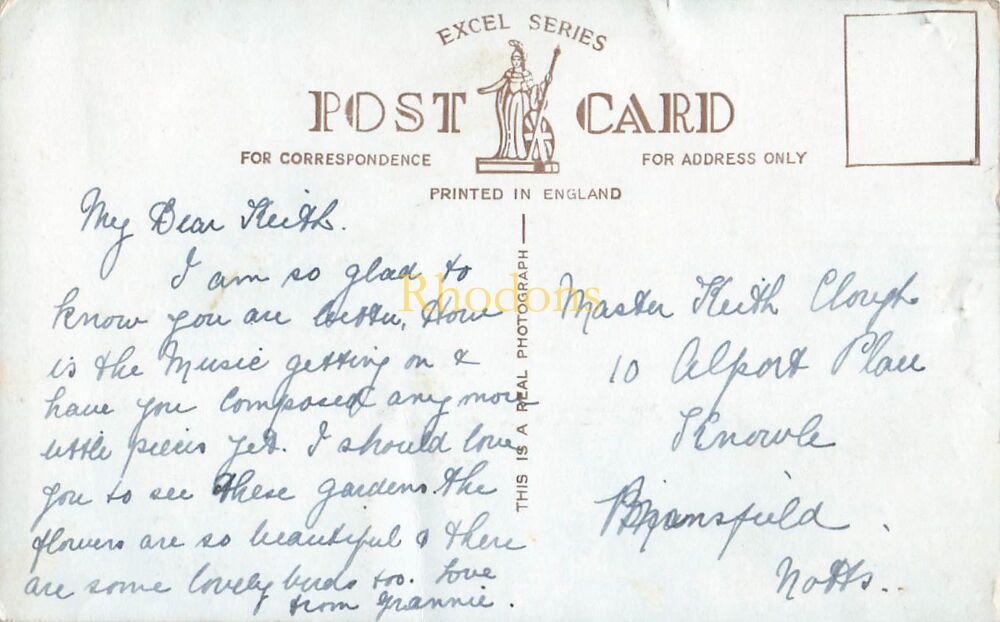 EXCEL SERIES
POST CARD
FOR CORRESPONDENCE
FOR ADDRESS ONLY
PRINTED IN ENGLAND
THIS IS A REAL PHOTOGRAPH
Rhodons
My Dear Keith.
I am so glad to
know you are better. How
is the Music getting on &
have you composed any more
little pieces yet. I should love
you to see these gardens. the
flowers are so beautiful & there
are some lovely birds too. Love
from Grannie.
Master Keith Clough
10 Alport Place
Knowle
Mansfield
Notts..